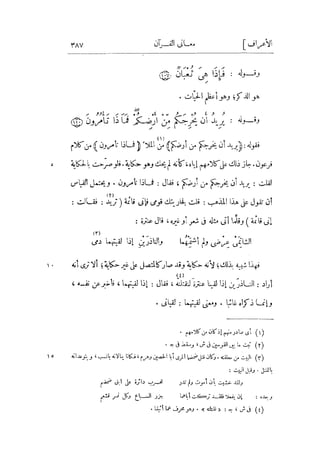 الأعراف] معانى القـرآن ٣٨٧
وقـوله : فَإِذَا هِىَ ثُعْبَانٌ (١٠٧)
هو الذكر؛ وهو أعظم الحيَّات .
وقـوله : يُرِيدُ أَن يُخْرِجَكُم مِّنْ أَرْضِكُمْ فَمَاذَا تَأْمُرُونَ (١١٠)
فقوله : (يريد أن يخرجكم من أرضكم) من الملأ (١) (فماذا تأمرون) من كلام
٥ فرعون. جاز ذلك على كلامهم إياه، كأنه لم يحك وهو حكاية. فلو صرّحت بالحكاية
لقلت : يريد أن يخرجكم من أرضكم، فقال : فماذا تأمرون . ويحتمل القياس
أن تقول على هذا المذهب : قلت لجاريتك قومى فإنى قائمة (٢) (تريد : فقالت :
إنى قائمة) وقلَّما أتى مثله فى شعر أو غيره، قال عنترة :
الشاتِمَىْ عِرْضِى ولم أشتمهما (٣) والناذِرَيْنِ إذا لقيتهما دمى
١٠ فهذا شبيه بذلك؛ لأنه حكاية وقد صار كالمتصل على غير حكاية؛ ألا ترى أنه
أراد : الناذرَيْن إذا لقينا عنترة لنقتلنّه (٤)، فقال : إذا لقيتهما، فأخبر عن نفسه،
وإنمـا ذكراه غائبا . ومعنى لقيتهما : لقيانى .
(١) أى صادر منهم إذ كان من كلامهم .
(٢) ثبت ما بين القوسين فى ش، وسقط فى ج .
١٥ (٣) البيت من معلقته . وكان قتل ضمضما المرّى أبا الحصين وهرم، فكانا ينالانه بالسب، ويتوعدانه
بالقتل . وقبل البيت :
ولقد خشيت بأن أموت ولم تدر للحرب دائرة على ابنى ضمضم
وبعده : إن يفعلا فلقـد تركت أباهما جزر السـباع وكل نسر قشعم
(٤) فى ش، ج :